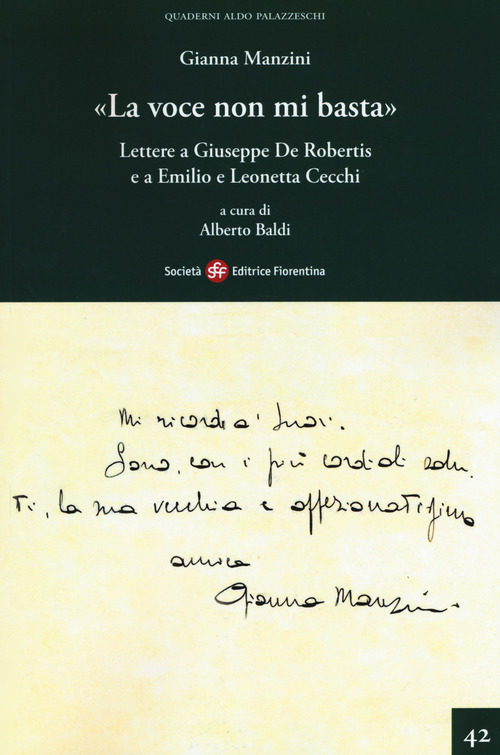 QUADERNI ALDO PALAZZESCHI
Gianna Manzini
«La voce non mi basta»
Lettere a Giuseppe De Robertis
e a Emilio e Leonetta Cecchi
a cura di
Alberto Baldi
Società sef Editrice Fiorentina
Mi ricordi a' Suoi.
Sono, con i più cordiali salu
ti, la sua vecchia e affezionatissima
amica
Gianna Manzini
42